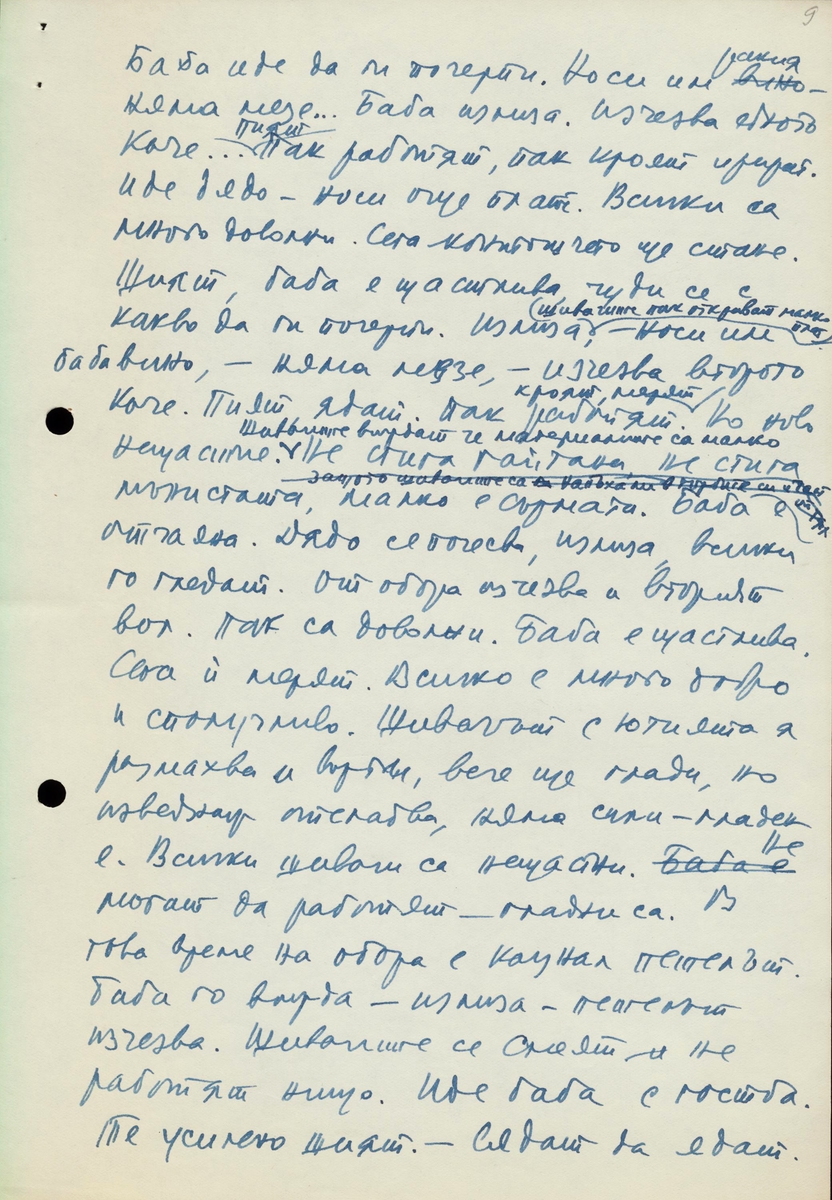 9
Баба иде да ги почерпи. Носи им ракия вино –
няма мезе... Баба излиза. Изчезва едното
Коче... Пият Пак работят, пак кроят и
Иде дядо – носи още плат. Всички са
много доволни. Сега контошчето ще стане.
Шият, баба е щастлива чуди се с
какво да ги почерпи. Излиза, (шивачите пак откриват малко плат) – носи им
баба вино, – няма мезе, – изчезва второто
Коче. Пият, ядат. Пак кроят, мерят работят. Но ново
нещастие. Шивачите виждат че материалите са малко
Не стига гайтана, не стига
защото шивачите са
мънистата, малко е сърмата. Баба е
отчаяна. Дядо се почесва, излиза, всички
го гледат. От обора изчезва и вторият
вол. Пак са доволни. Баба е щастлива.
Сега ѝ мерят. Всичко е много добро
и сполучливо. Шивачът с ютията я
размахва и върти, вече ще глади, но
изведнъж отслабва, няма сили – гладен
е. Всички шивачи са нещастни. Баба е не
могат да работят – гладни са. В
това време на обора е кацнал петелът.
Баба го вижда – излиза – петелът
изчезва. Шивачите се смеят и не
работят нищо. Иде баба с гостба.
Те усилено шият. – Сядат да ядат.